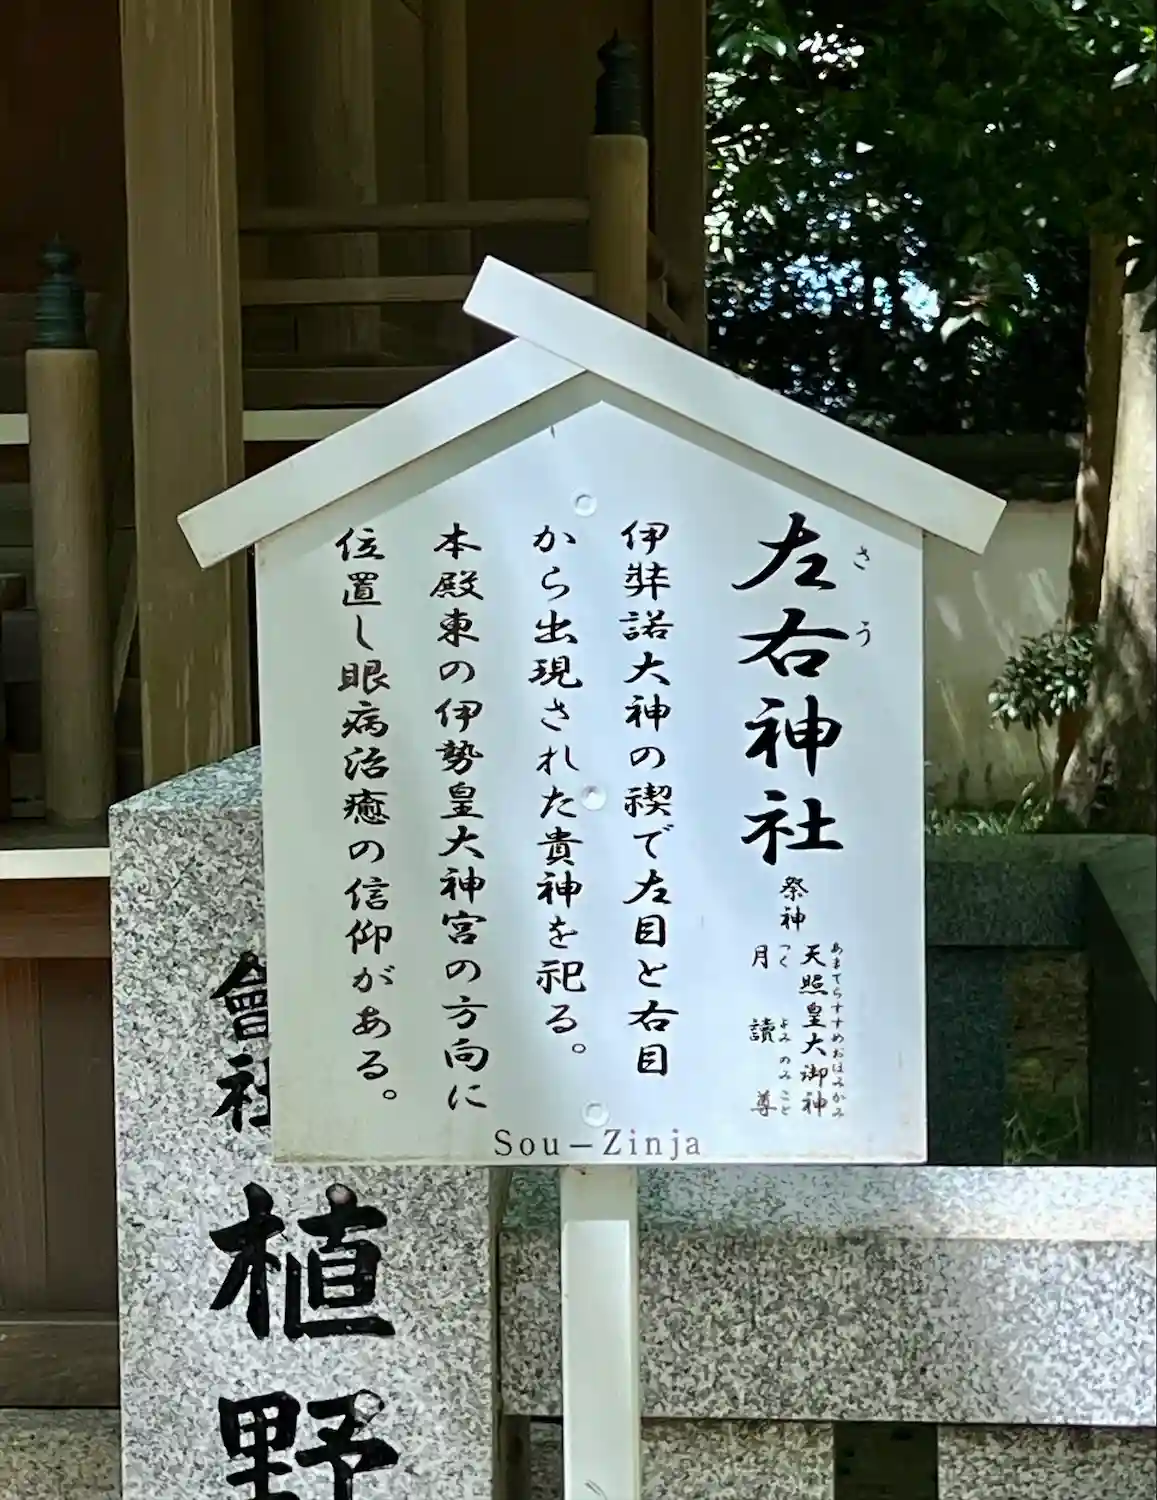 左右神社
さう
祭神
天照皇大御神
あまてらすすめおほみかみ
月讀尊
つくよみのみこと
伊弉諾大神の禊で左目と右目
から出現された貴神を祀る。
本殿東の伊勢皇大神宮の方向に
位置し眼病治癒の信仰がある。
Sou-Zinja
會社
植野